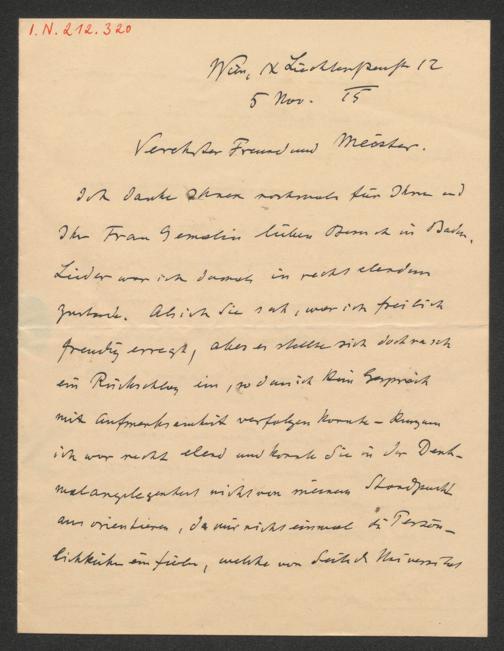 I.N. 212.320
Wien, IX Liechtensteinstr 12
5 Nov. 15
Verehrter Freund und Meister.
Ich danke Ihnen nochmals für Ihren und
Ihr Frau Gemalin lieben Besuch in Baden.
Leider war ich damals in recht elendem
Zustande. Als ich Sie sah, war ich freilich
freudig erregt, aber es stellte sich doch rasch
ein Rückschlag ein, so dass ich kein Gespräch
mit Aufmerksamkeit verfolgen konnte – kurzum
ich war recht elend und konnte Sie in der Denk-
malangelegenheit nicht von meinem Standpunkt
aus orientieren, da mir nicht einmal die Persön-
lichkeiten einfielen, welche von Seite d. Universität